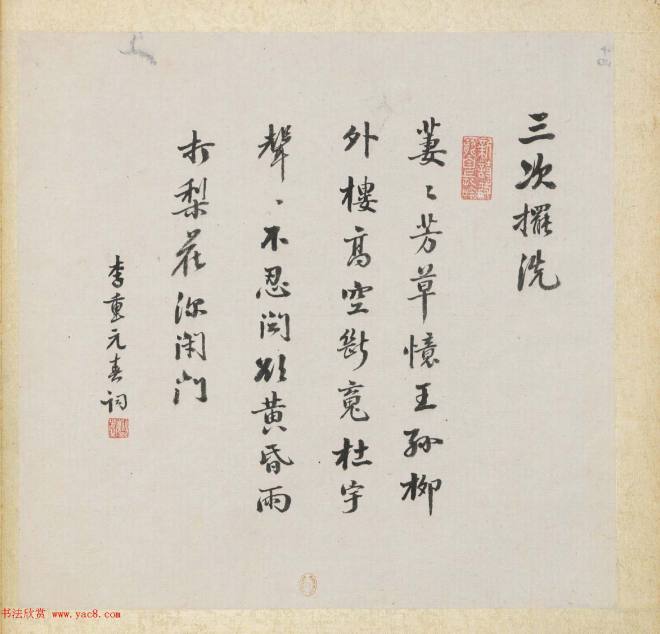 三次擺洗
新詩改罷自長吟
萋〻芳草憶王孫柳
外樓高空斷魂杜宇
聲〻不忍聞欲黃昏雨
打梨花深閉門
李重元春詞
书法欣赏 www.yac8.com